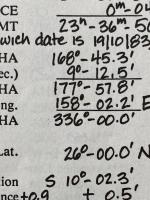 CE 0ᵐ-04
MT 23ʰ-36ᵐ-56
wich date is 19/10/83,
HA 168°-45.3'
ec.) 9°-12.5'
HA 177°-57.8'
ng. 158°-02.2' E
HA 336°-00.0'
Lat. 26°-00.0' N
tion S 10°-02.3'
nce+0.9 + 0.5'